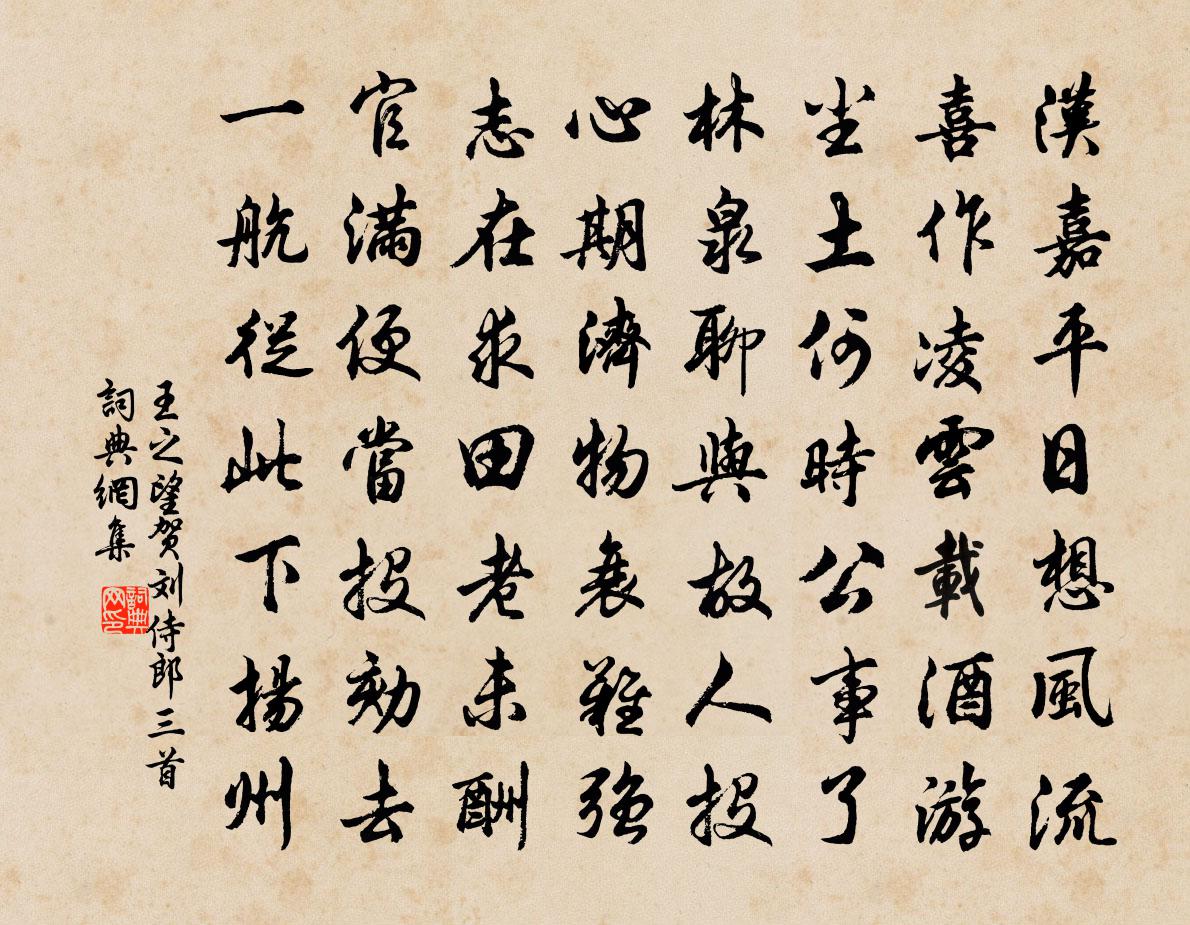 漢嘉平日想風流
喜作凌雲載酒游
尘土何時公事了
林泉聊與故人投
心期濟物衰難强
志在求田老未酬
官滿便當投劾去
一航從此下揚州
王之望贺刘侍郎三首
詞典網集
詞典网印